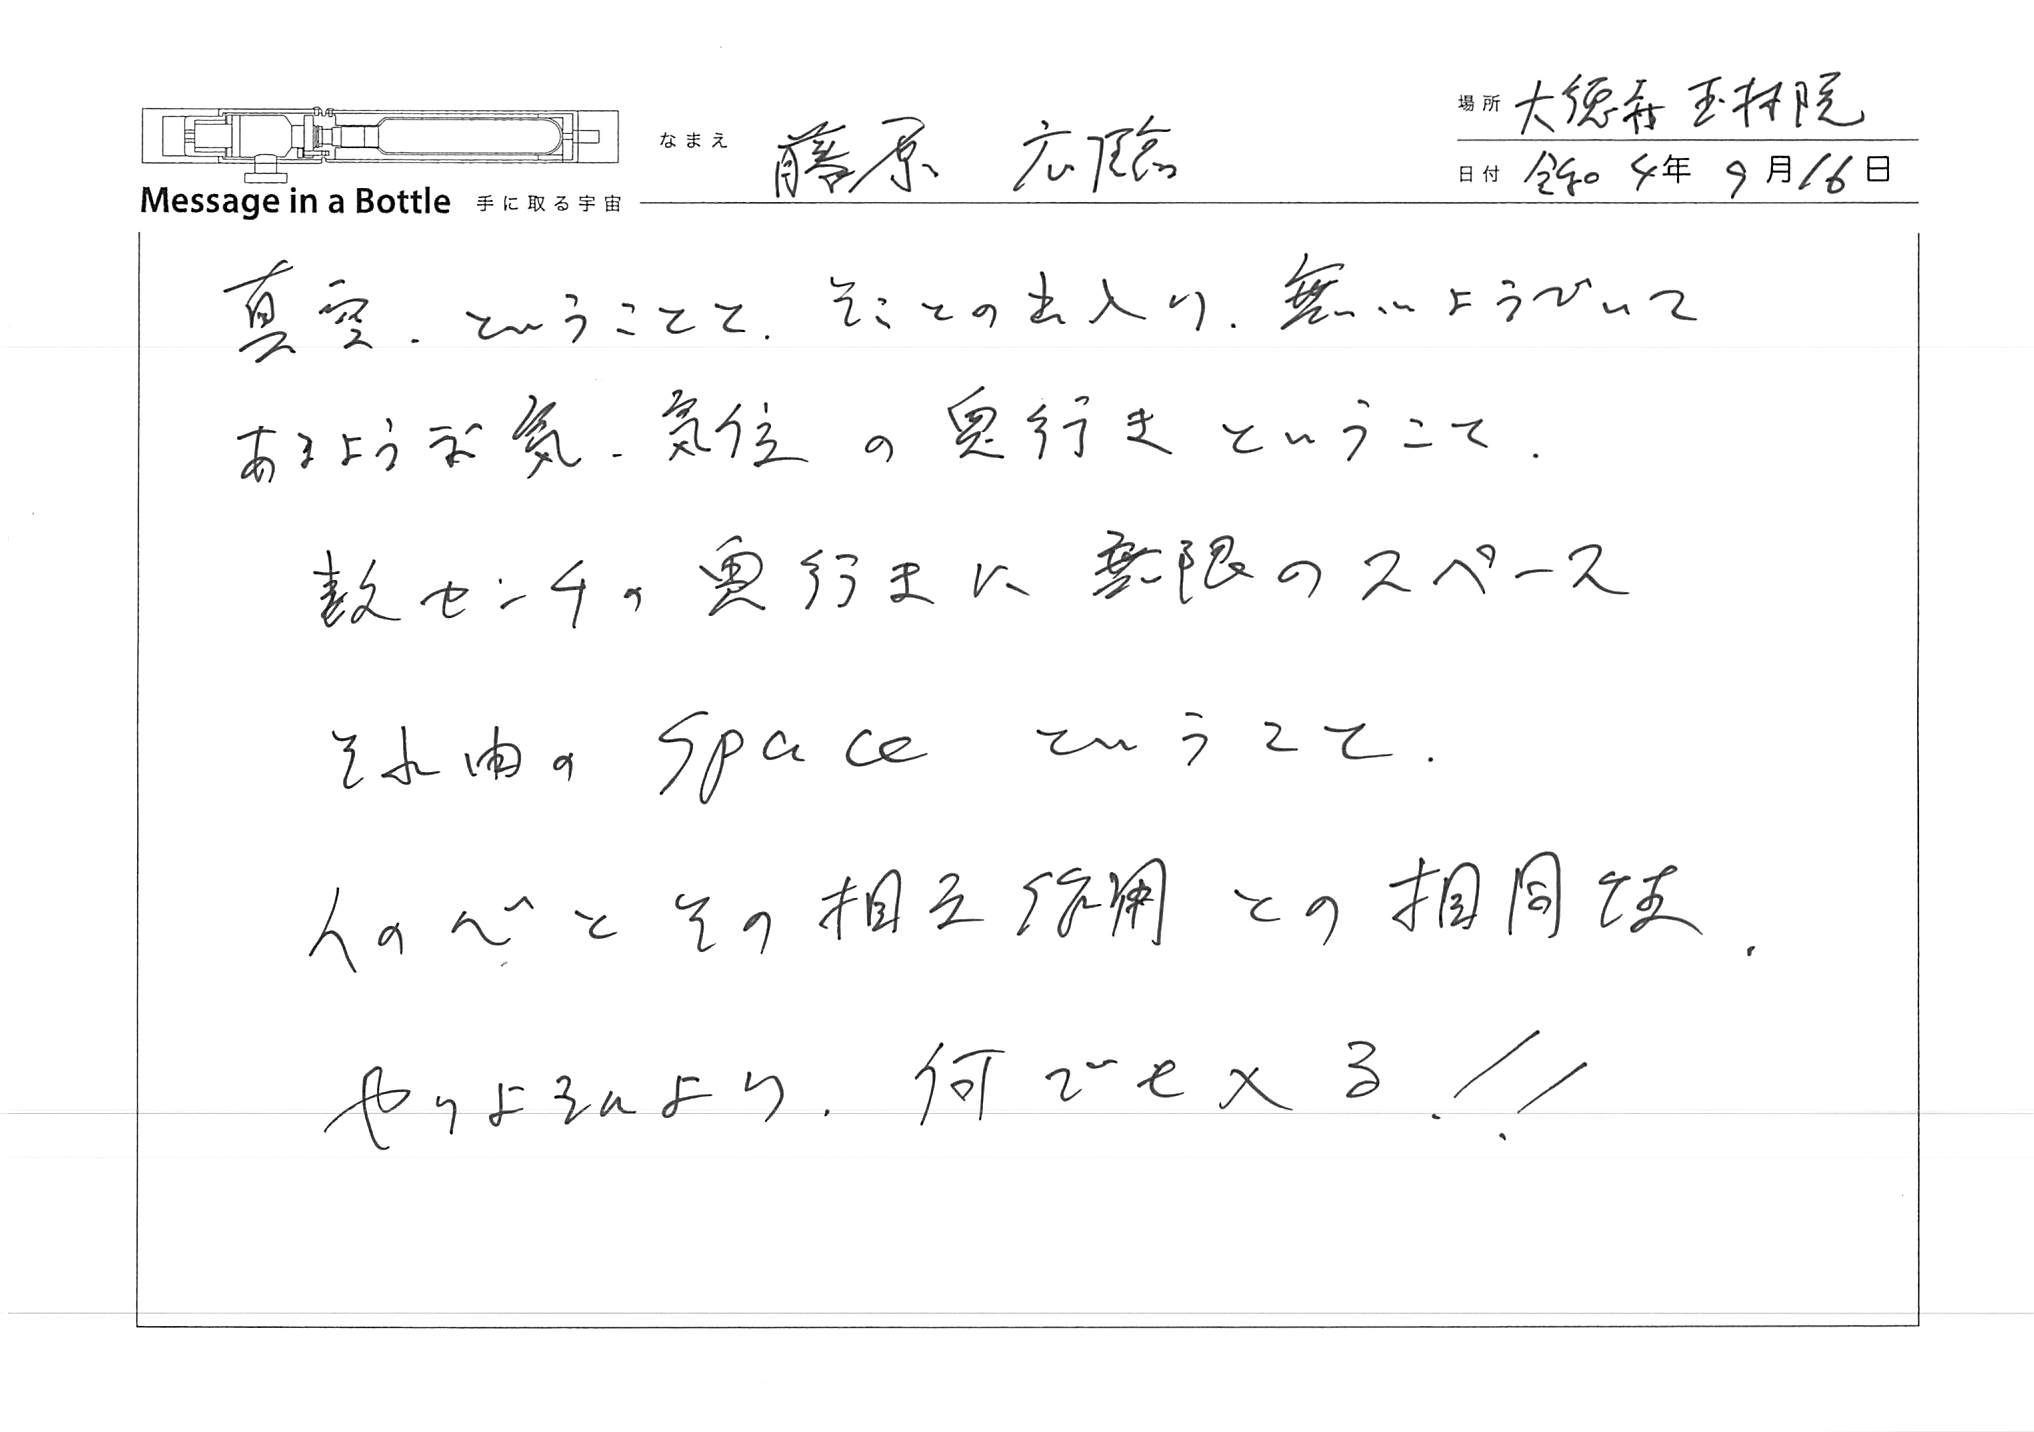 場所 大徳寺 玉林院
なまえ 藤原 広臨
日付 令和 4年 9月16日
Message in a Bottle 手に取る宇宙
真空. ということと. そことの出入り. 無いようでいて
あるような気. 気位の奥行きということ.
数センチの奥行きに無限のスペース
それ由の Space ということ.
人の心とその相互作用との相同性.
やりようにより. 何でも入る!!